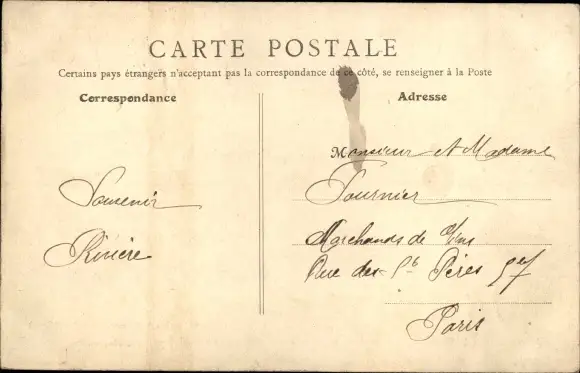 CARTE POSTALE
Certains pays étrangers n'acceptant pas la correspondance de ce côté, se renseigner à la Poste
Correspondance
Adresse
Souvenir
Rivière
Monsieur et Madame
Fournier
Marchands de Vins
Rue des Sts Pères
Paris